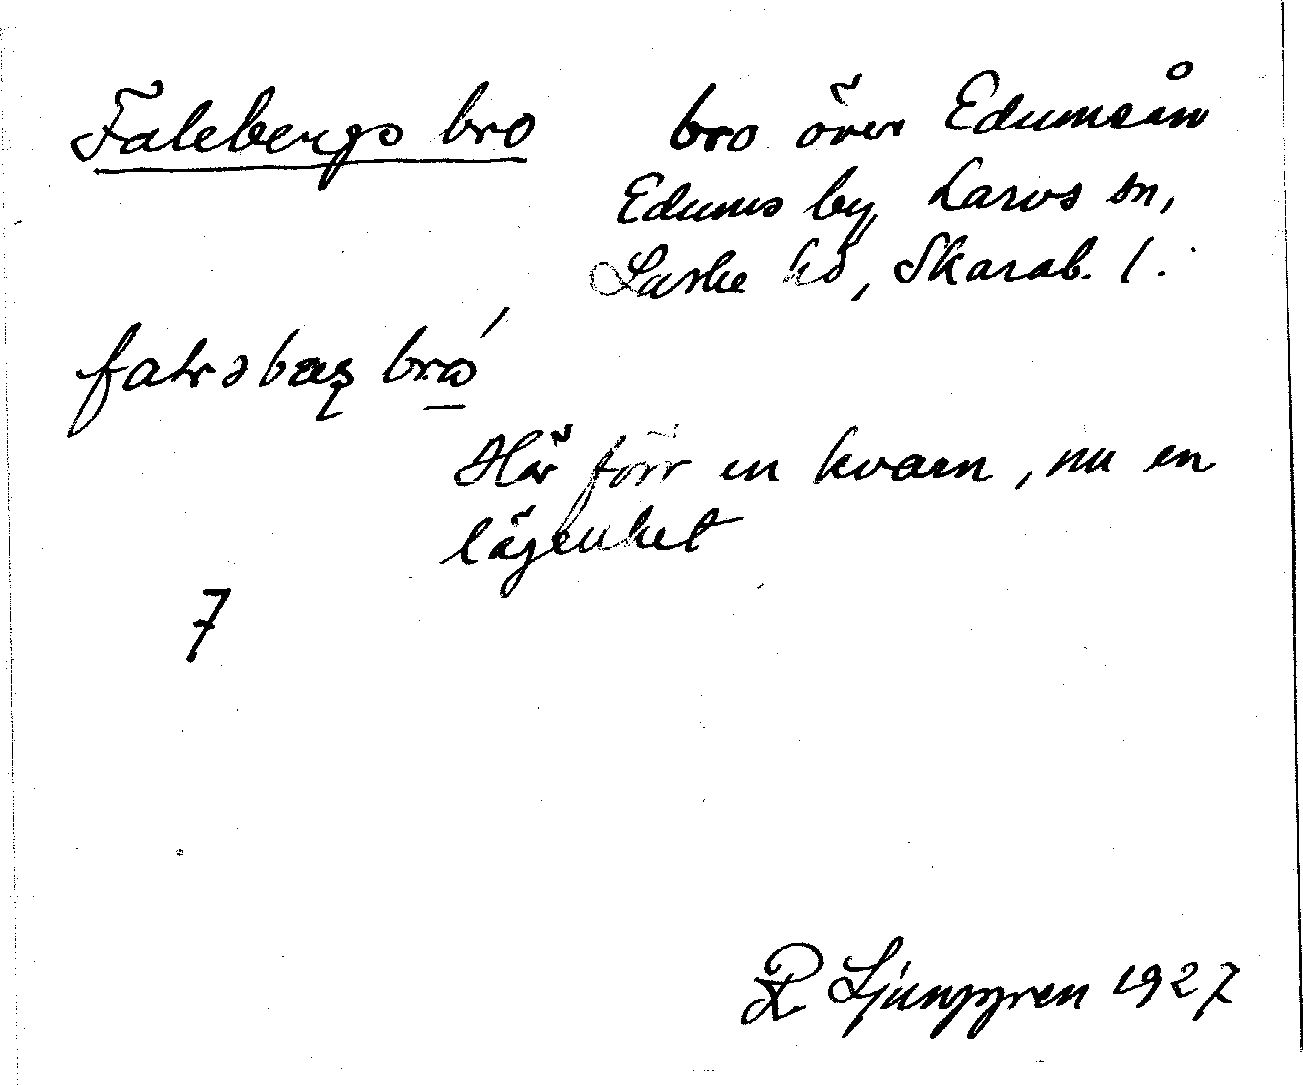 Falebergs bro bro över Edumsån
Edums by, Larvs sn,
Laske hd, Skarab. l.
Här förr en kvarn, nu en
lägenhet
7
R Ljunggren 1927